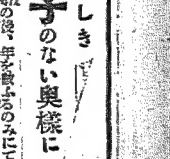 しき
子のない奥様に
後、年を數ふるのみにて